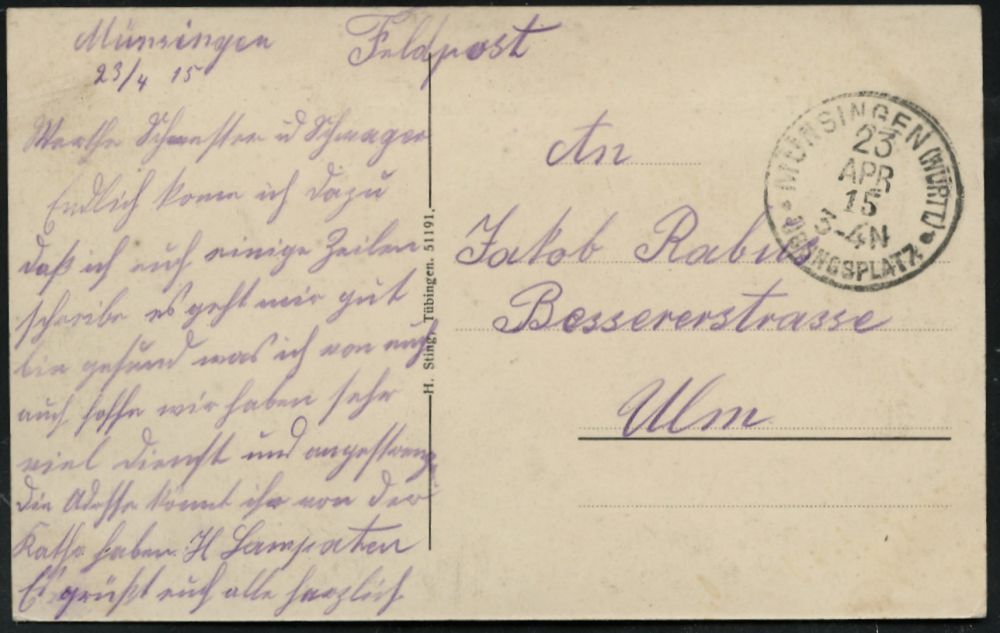 Münsingen
23/4 15
Werthe Schwester u Schwager
Endlich kome ich dazu
daß ich euch einige Zeilen
schreibe es geht mir gut
bin gesund was ich von euch
auch hoffe wir haben sehr
viel Dienst und angestrengt
Die Adresse könnt ihr von der
haben H
Es grüßt euch alle herzlich
Feldpost
An
Jakob Rabus
Bessererstrasse
Ulm
H. Sting, Tübingen. 51191.
MÜNSINGEN (WÜRTT.)
23
APR
15
3-4N
ÜBUNGSPLATZ